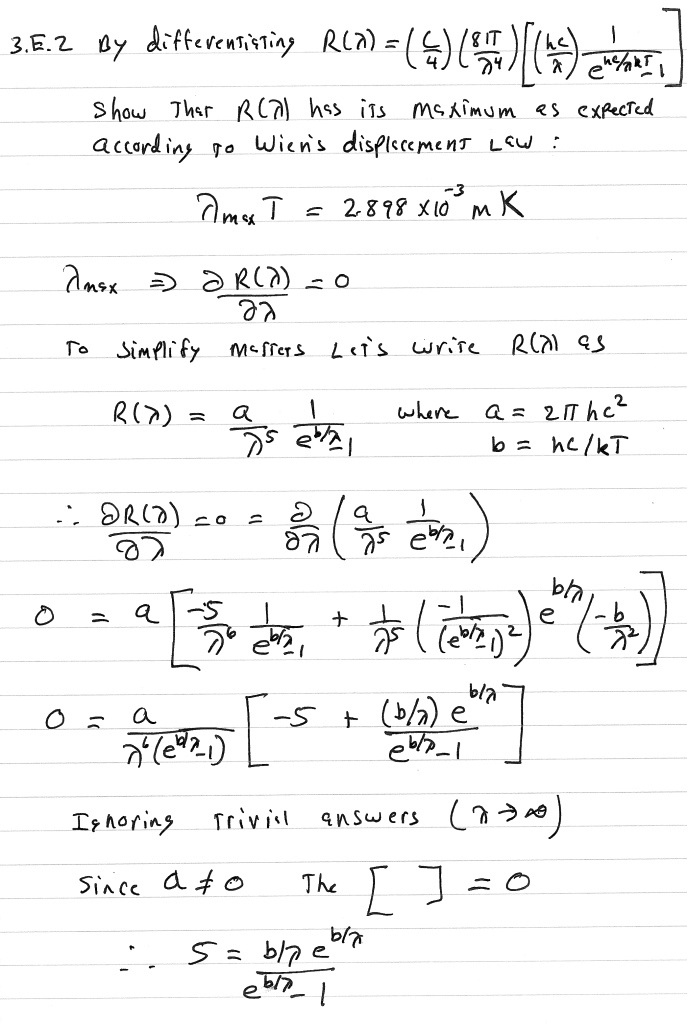 3.E.2 By differentiating R(λ) = (c/4) (8π/λ⁴) [(hc/λ) 1/(e^(hc/λkT) - 1)]
Show That R(λ) has its maximum as expected
according to Wien's displacement Law :
λmax T = 2.898 x10⁻³ m K
λmax ⇒ ∂R(λ)/∂λ = 0
To simplify matters Let's write R(λ) as
R(λ) = a/λ⁵ 1/(e^(b/λ) - 1) where a = 2πhc²
b = hc/kT
∴ ∂R(λ)/∂λ = 0 = ∂/∂λ (a/λ⁵ 1/(e^(b/λ) - 1))
0 = a [-5/λ⁶ 1/(e^(b/λ) - 1) + 1/λ⁵ (-1/(e^(b/λ) - 1)²) e^(b/λ) (-b/λ²)]
0 = a/(λ⁶(e^(b/λ) - 1)) [-5 + (b/λ) e^(b/λ)/(e^(b/λ) - 1)]
Ignoring trivial answers (λ → ∞)
Since a ≠ 0 The [ ] = 0
∴ 5 = b/λ e^(b/λ)/(e^(b/λ) - 1)